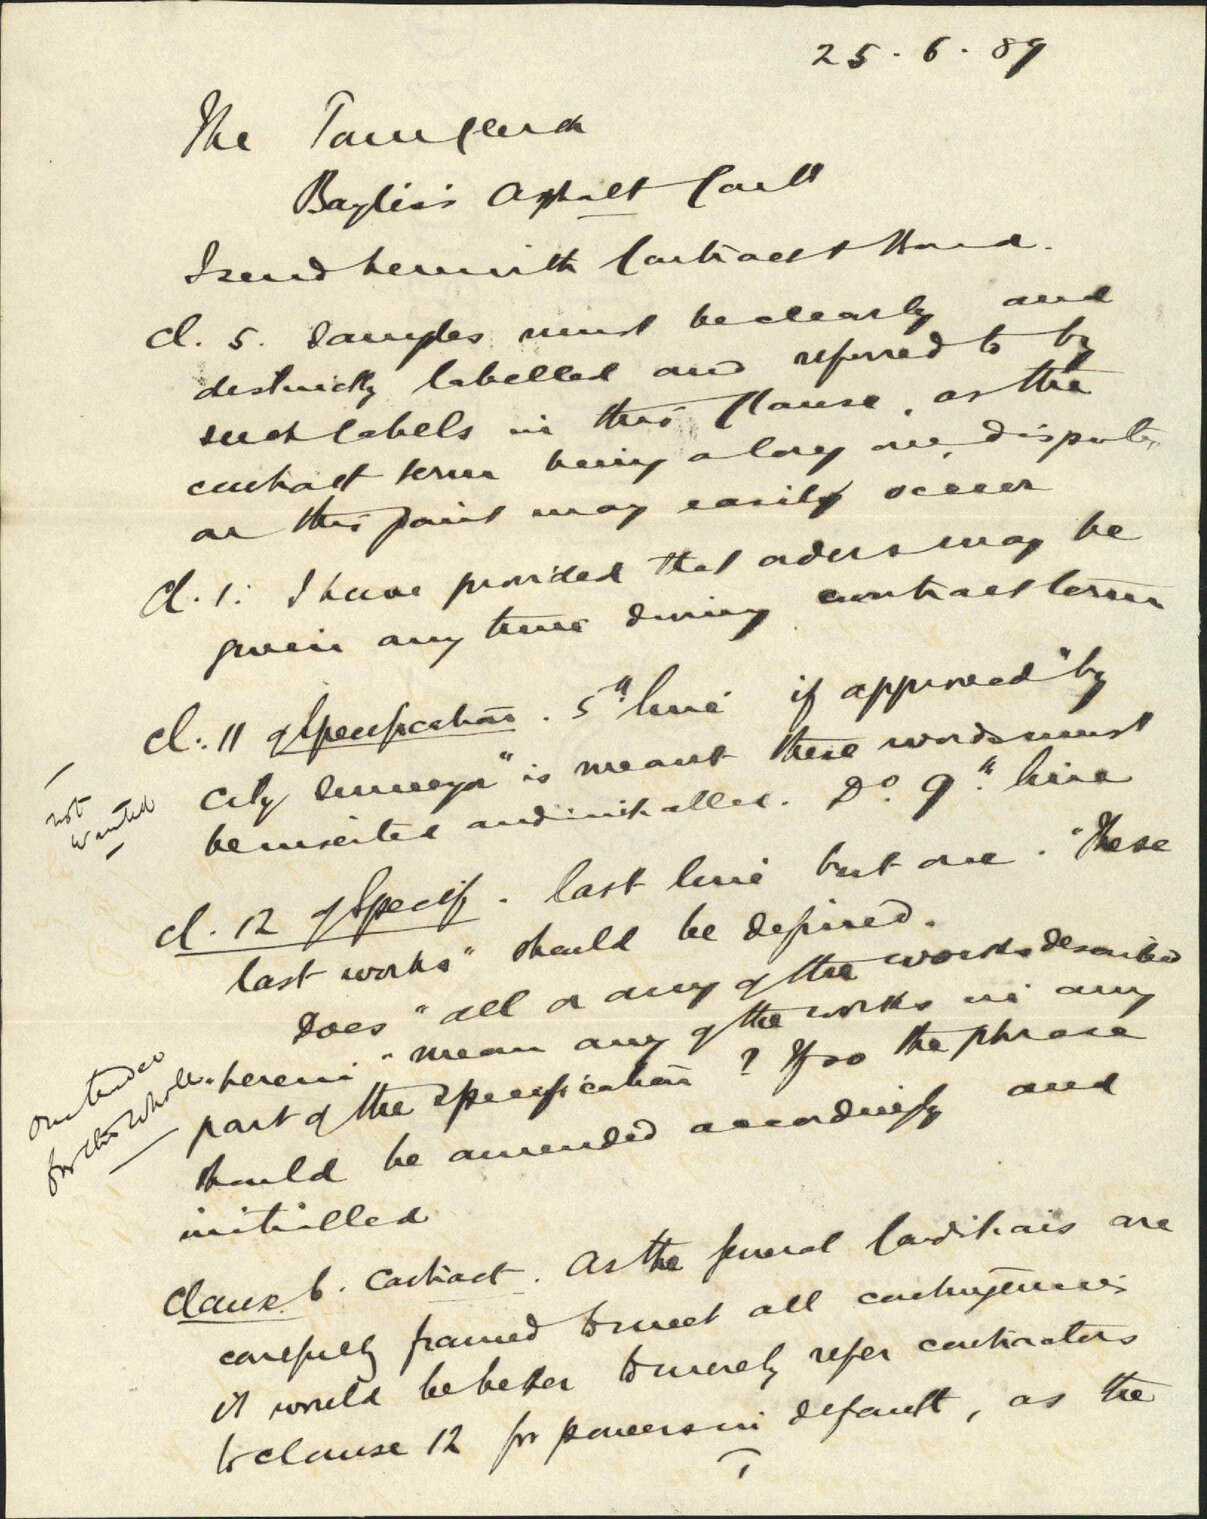 25.6.89
The Town Clerk
Bayliss Asphalt Contt
I send herewith Contract & Bond.
Cl. 5. Samples must be clearly and
distinctly labelled and referred to by
such labels in this Clause, as the
contract term being a long one, disputes
on this point may easily occur
Cl. 1. I have provided that orders may be
given any time during contract term
Cl. 11 of Specification. 5th line if approved "by
City Surveyor" is meant these words must
be inserted and initialled. Do. 9th line
not
wanted
Cl. 12 of Specif. last line but one. "These
last works" should be defined.
Does "all or any of the works described
herein" mean any of the works in any
part of the specification? If so the phrase
should be amended accordingly and
initialled
one tender
for the whole
Clause 6. Contract. As the general Conditions are
carefully framed to meet all contingencies
it would be better to merely refer contractors
to clause 12 for powers in default, as the